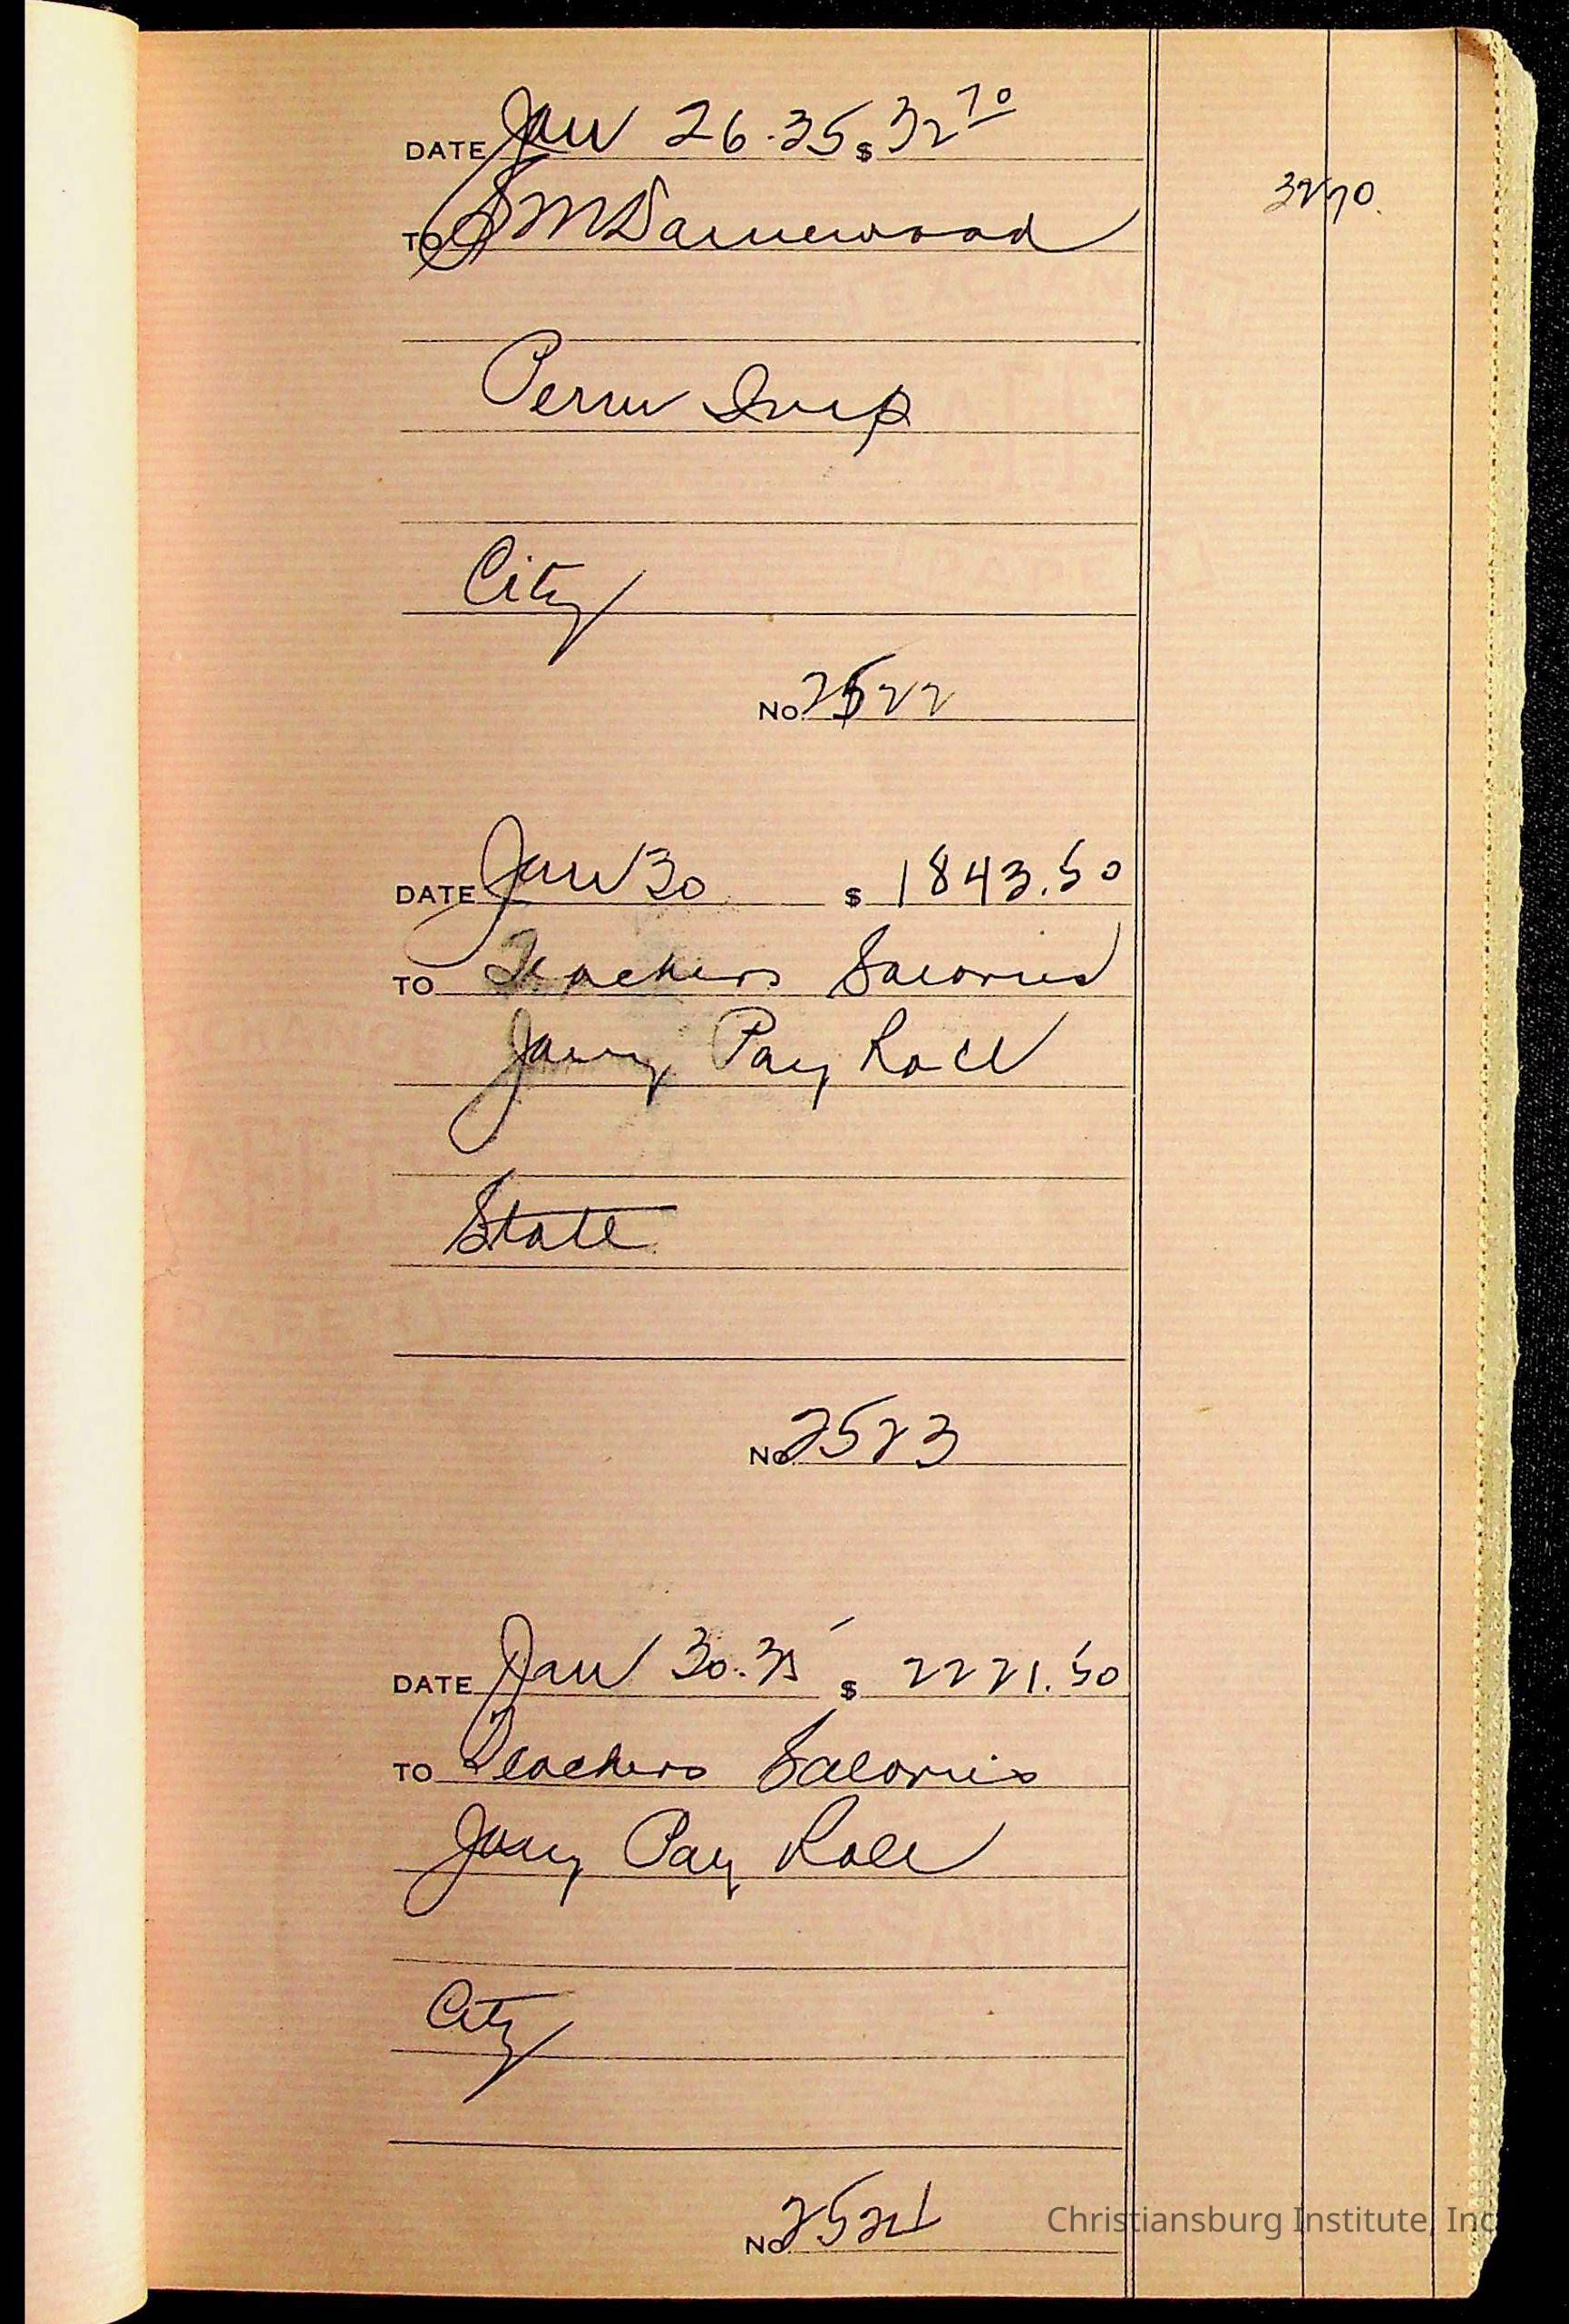 DATE Jan 26.35 $ 32 70
32 70
TO S M Darnewood
Perm Imp
City
No. 2522
DATE Jan 30 $ 1843.50
TO Teachers Salaries
Jany Pay Roll
State
No. 2523
DATE Jan 30.35 $ 2221.50
TO Teachers Salaries
Jany Pay Roll
City
No. 2524
Christiansburg Institute, Inc